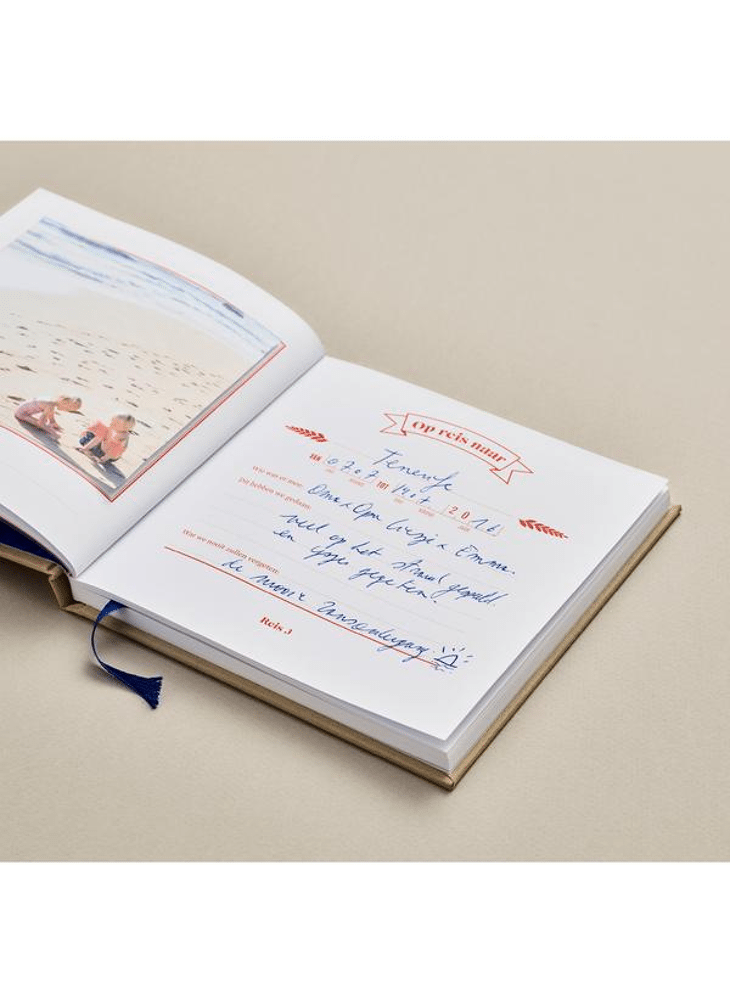 Op reis naar
Tenerife
VAN 07 07 TOT 1407 2016
Wie was er mee: Oma & Opa Liesje & Emma.
Dit hebben we gedaan: veel op het strand gespeeld
en ijsjes gegeten.
Wat we nooit zullen vergeten:
de mooie zonsondergang
Reis 1